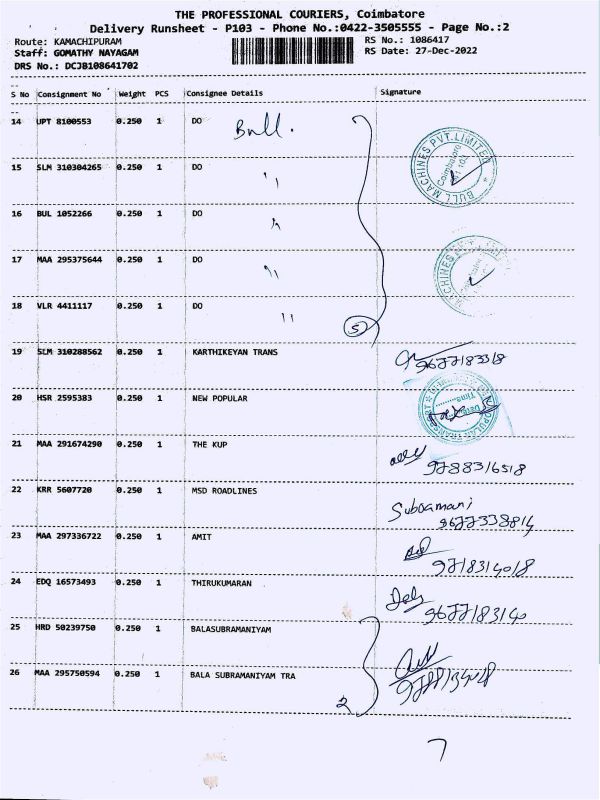 THE PROFESSIONAL COURIERS, Coimbatore
Delivery Runsheet - P103 - Phone No.:0422-3505555 - Page No.:2
Route: KAMACHIPURAM
RS No.: 1086417
Staff: GOMATHY NAYAGAM
RS Date: 27-Dec-2022
DRS No.: DCJB108641702
S No Consignment No Weight PCS Consignee Details Signature
14 UPT 8100553 0.250 1 DO Bull.
BULL MACHINES PVT.LIMITED
Coimbatore
15 SLM 310304265 0.250 1 DO ''
16 BUL 1052266 0.250 1 DO ''
17 MAA 295375644 0.250 1 DO ''
MACHINES
18 VLR 4411117 0.250 1 DO ''
5
19 SLM 310288562 0.250 1 KARTHIKEYAN TRANS
20 HSR 2595383 0.250 1 NEW POPULAR
Time
21 MAA 291674290 0.250 1 THE KUP
9788316518
22 KRR 5607720 0.250 1 MSD ROADLINES
Subramani
9677338814
23 MAA 297336722 0.250 1 AMIT
24 EDQ 16573493 0.250 1 THIRUKUMARAN
9677183140
25 HRD 50239750 0.250 1 BALASUBRAMANIYAM
26 MAA 295750594 0.250 1 BALA SUBRAMANIYAM TRA
2
7